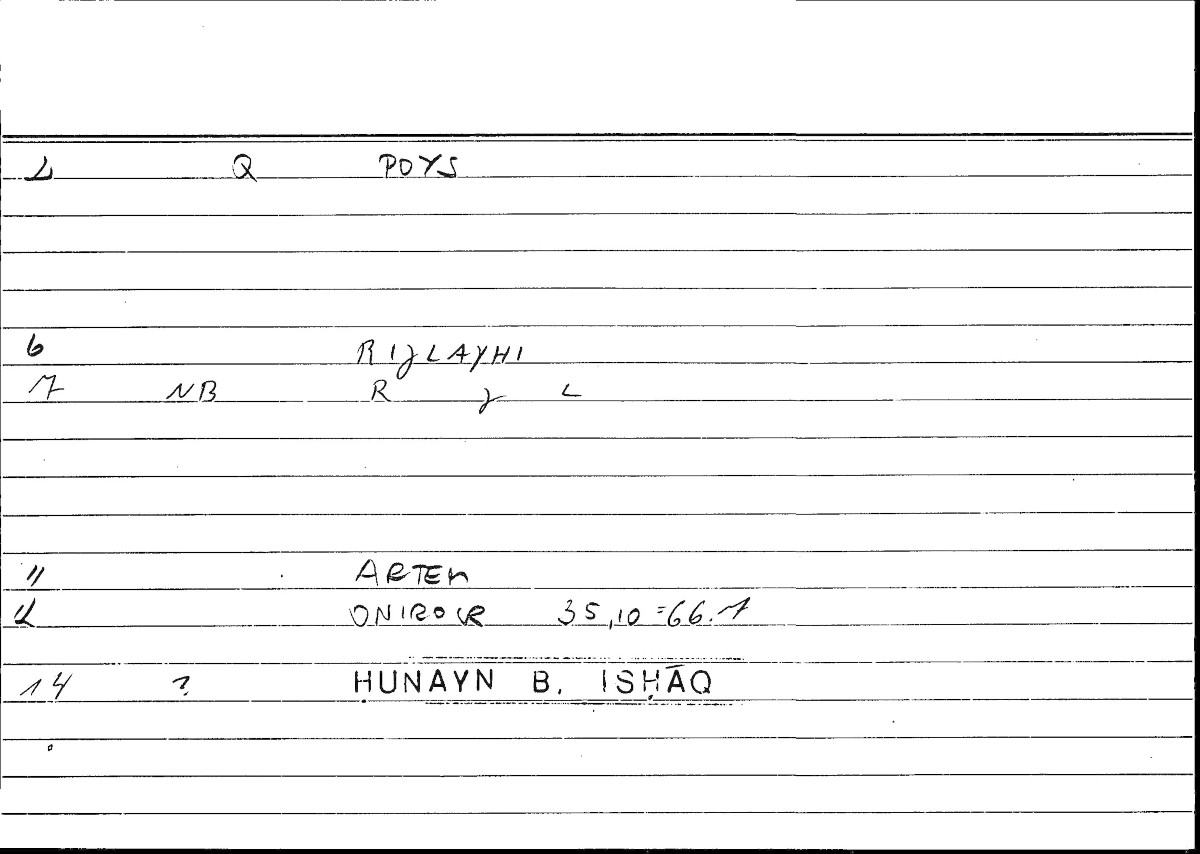 2 Q POYS
6 RIJLAYHI
7 NB R J L
11 ARTEM
12 ONIROCR 35,10=66.1
14 ? ḤUNAYN B. ISḤĀQ